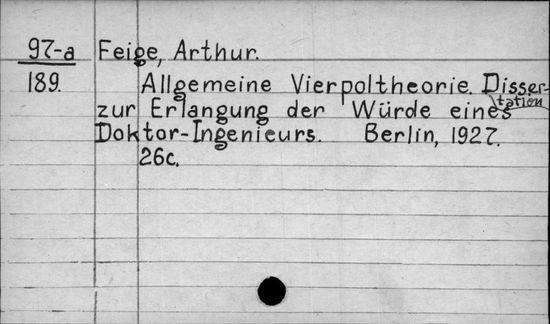 97-a Feige, Arthur.
189. Allgemeine Vierpoltheorie. Disser-
tation
zur Erlangung der Würde eines
Doktor-Ingenieurs. Berlin, 1927.
26c.